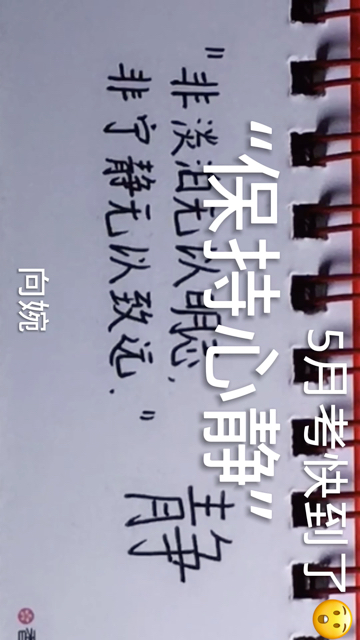 5月考快到了😯
“保持心静”
“非淡泊无以明志,
非宁静无以致远.”
静
向婉